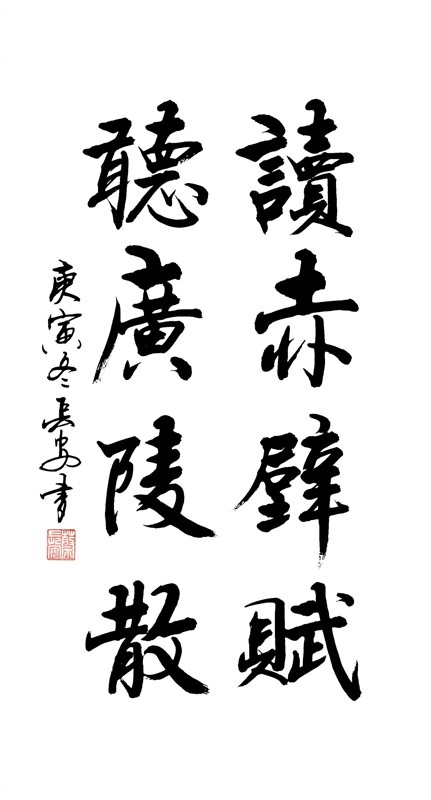 讀赤壁賦
聽廣陵散
庚寅冬長安書